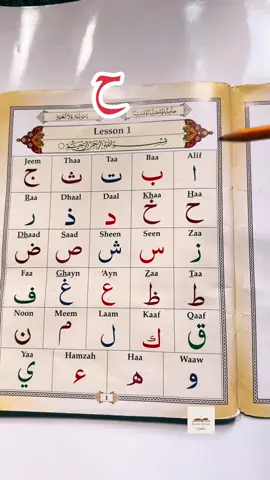 ح
Lesson 1
بِسْمِ اللهِ الرَّحْمٰنِ الرَّحِيْمِ
Jeem Thaa Taa Baa Alif
ا ب ت ث ج
Raa Dhaal Daal Khaa Haa
ح خ د ذ ر
Dhaad Saad Sheen Seen Zaa
ز س ش ص ض
Faa Ghayn ‘Ayn Zaa Taa
ط ظ ع غ ف
Noon Meem Laam Kaaf Qaaf
ق ك ل م ن
Yaa Hamzah Haa Waaw
و ه ء ي
1